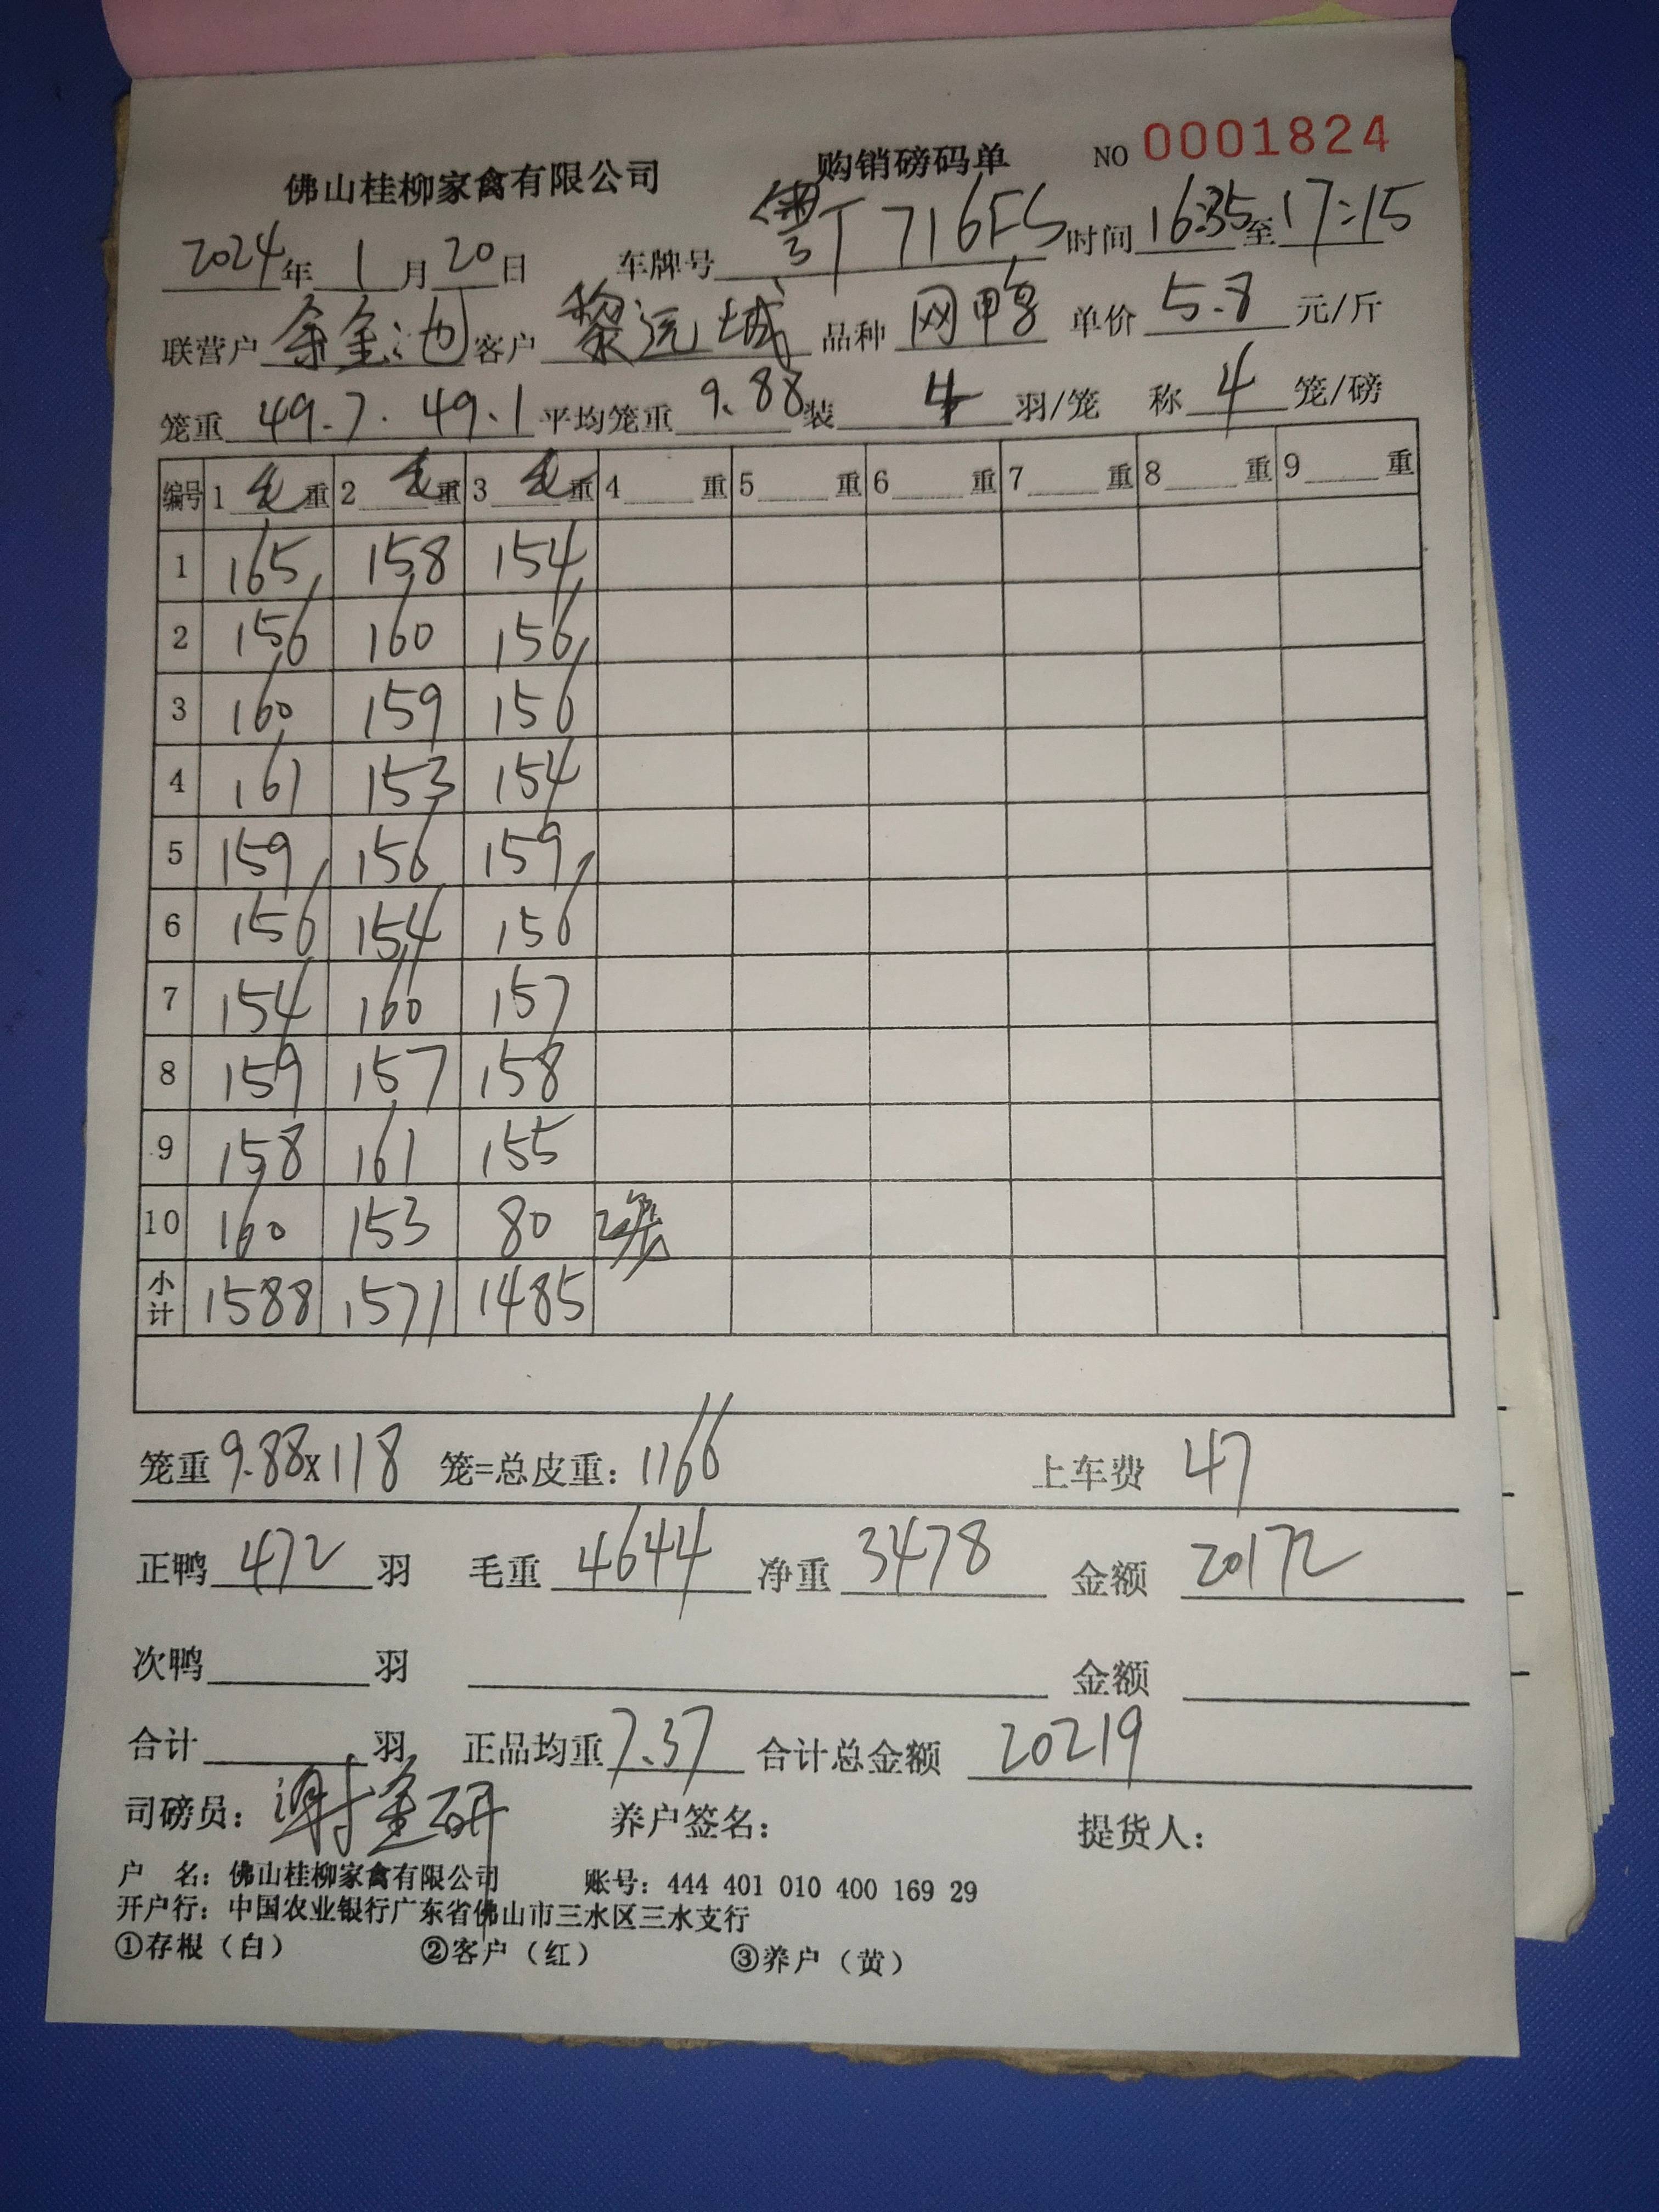 佛山桂柳家禽有限公司 购销磅码单 NO 0001824
2024年1月20日 车牌号 粤T716FS 时间 16:35至17:15
联营户 余金池 客户 黎远城 品种 网鸭 单价 5.8 元/斤
笼重 49.7. 49.1 平均笼重 9.88 装 4 羽/笼 称 4 笼/磅
编号 1 毛重 2 毛重 3 毛重 4 重 5 重 6 重 7 重 8 重 9 重
1 165 158 154
2 156 160 156
3 160 159 156
4 161 153 154
5 159 156 159
6 156 154 156
7 154 160 157
8 159 157 158
9 158 161 155
10 160 153 80
小计 1588 1571 1485
笼重 9.88X118 笼=总皮重: 1166 上车费 47
正鸭 472 羽 毛重 4644 净重 3478 金额 20172
次鸭 羽 金额
合计 羽 正品均重 7.37 合计总金额 20219
司磅员: 谢金研 养户签名: 提货人:
户 名: 佛山桂柳家禽有限公司 账号: 444 401 010 400 169 29
开户行: 中国农业银行广东省佛山市三水区三水支行
①存根（白） ②客户（红） ③养户（黄）